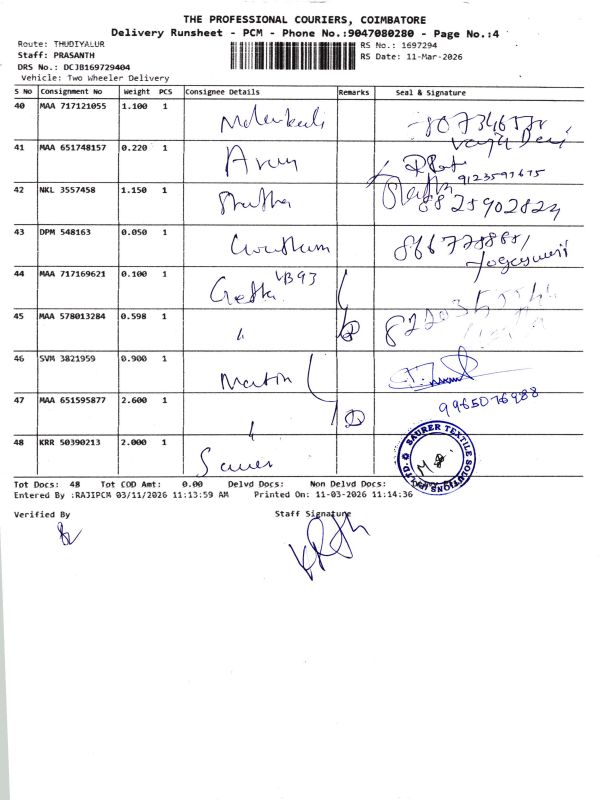 THE PROFESSIONAL COURIERS, COIMBATORE
Delivery Runsheet - PCM - Phone No.:9047080280 - Page No.:4
Route: THUDIYALUR
RS No.: 1697294
Staff: PRASANTH
RS Date: 11-Mar-2026
DRS No.: DCJB169729404
Vehicle: Two Wheeler Delivery
S NO Consignment No Weight PCS Consignee Details Remarks Seal & Signature
40 MAA 717121055 1.100 1
41 MAA 651748157 0.220 1 Arun
9123597675
42 NKL 3557458 1.150 1
8825902824
43 DPM 548163 0.050 1 Gowtham
44 MAA 717169621 0.100 1 Geetha
45 MAA 578013284 0.598 1 "
46 SVM 3821959 0.900 1 Martin
47 MAA 651595877 2.600 1 "
9965076988
48 KRR 50390213 2.000 1 Saurer
SAURER TEXTILE SOLUTIONS
Tot Docs: 48 Tot COD Amt: 0.00 Delvd Docs: Non Delvd Docs:
Entered By :RAJIPCM 03/11/2026 11:13:59 AM Printed On: 11-03-2026 11:14:36
Verified By Staff Signature